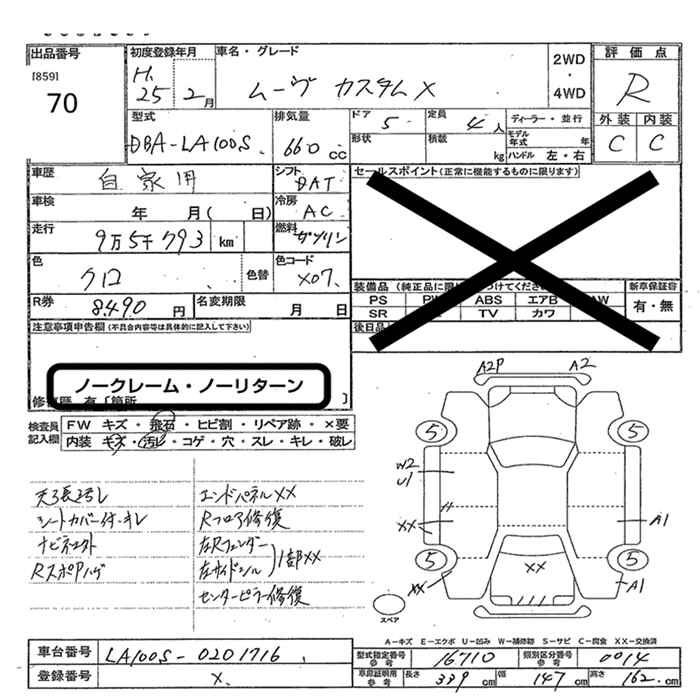 出品番号
[859]
70
初度登録年月
H.
25 2月
車名・グレード
ムーヴ カスタムX
2WD
・
4WD
評価点
R
外装 内装
C C
型式
DBA-LA100S
排気量
660 cc
ドア 5
形状
定員 4人
積載 kg
ディーラー・並行
モデル年式 年
ハンドル 左・右
車歴 自家用
シフト DAT
セールスポイント(正常に機能するものに限ります)
車検 年 月( 日)
冷房 AC
走行 9万5千793 km
燃料 ガソリン
色 クロ 色替
色コード X07
装備品
新車保証書
PS ABS エアB AW
SR TV カワ
有・無
R券 8490円
名変期限 月 日
後日品
注意事項申告欄(不具合内容等は具体的に記入して下さい)
ノークレーム・ノーリターン
検査員記入欄
FW キズ・飛石・ヒビ割・リペア跡・×要
内装 キズ・汚レ・コゲ・穴・スレ・キレ・破レ
シートカバー付・キレ
エンドパネルXX
Rフロア修復
右Rフェンダー
左サイドシル
1部XX
センターピラー修復
A2P A2
5 5
W2
U1
XX
A1
5 5
XX
XX
A1
スペア
A-キズ E-エクボ U-凹み W-補修跡 S-サビ C-腐食 XX-交換済
車台番号 LA100S-0201716
型式指定番号 参考 16710
類別区分番号 参考 0014
登録番号 X
車庫証明用 参考 長さ 339 cm 幅 147 cm 高さ 162 cm